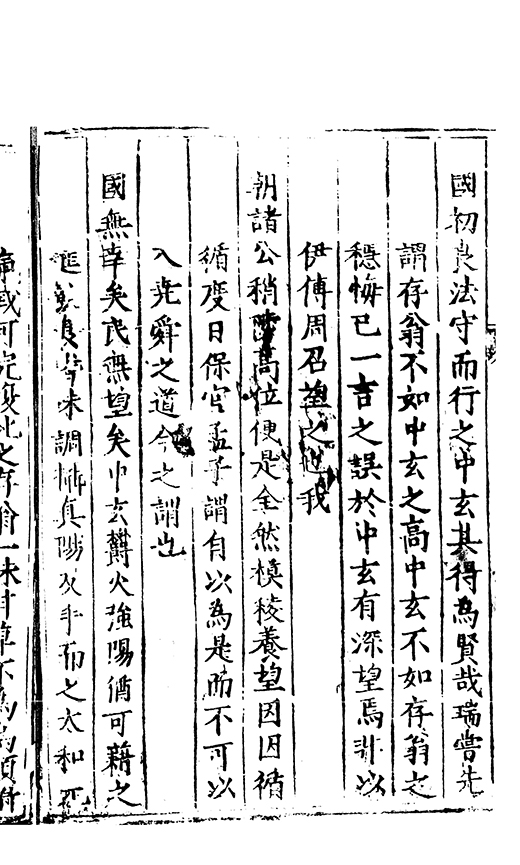 國初良法守而行之中玄其得為賢哉瑞嘗先
謂存翁不如中玄之高中玄不如存翁之
穩悔已一言之誤於中玄有深望焉非以
伊傅周召望之也我
朝諸公稍陟高位便是全然模稜養望因循
循度日保官孟子謂自以為是而不可以
入堯舜之道今之謂也
國無幸矣民無望矣中玄欝火強陽猶可藉之
進良味調攝真陽及平而之太和
可完復比之存翁一味甘草不為